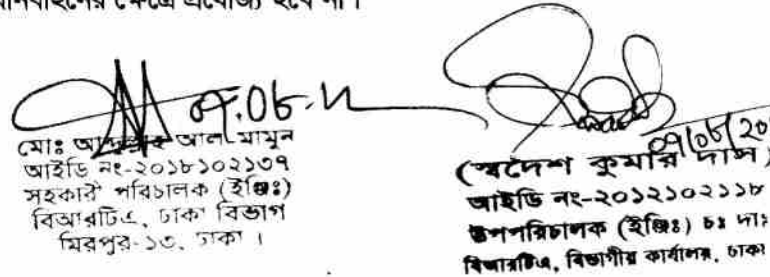 ক্ষেত্রে প্রযোজ্য হবে না।
মোঃ আল মামুন
আইডি নং-২০১৮১০২১৩৭
সহকারী পরিচালক (ইঞ্জিঃ)
বিআরটিএ, ঢাকা বিভাগ
মিরপুর-১৩, ঢাকা ।
(স্বদেশ কুমার দাস)
আইডি নং-২০১২১০২১১৮
উপপরিচালক (ইঞ্জিঃ) চঃ দাঃ
বিআরটিএ, বিভাগীয় কার্যালয়, ঢাকা